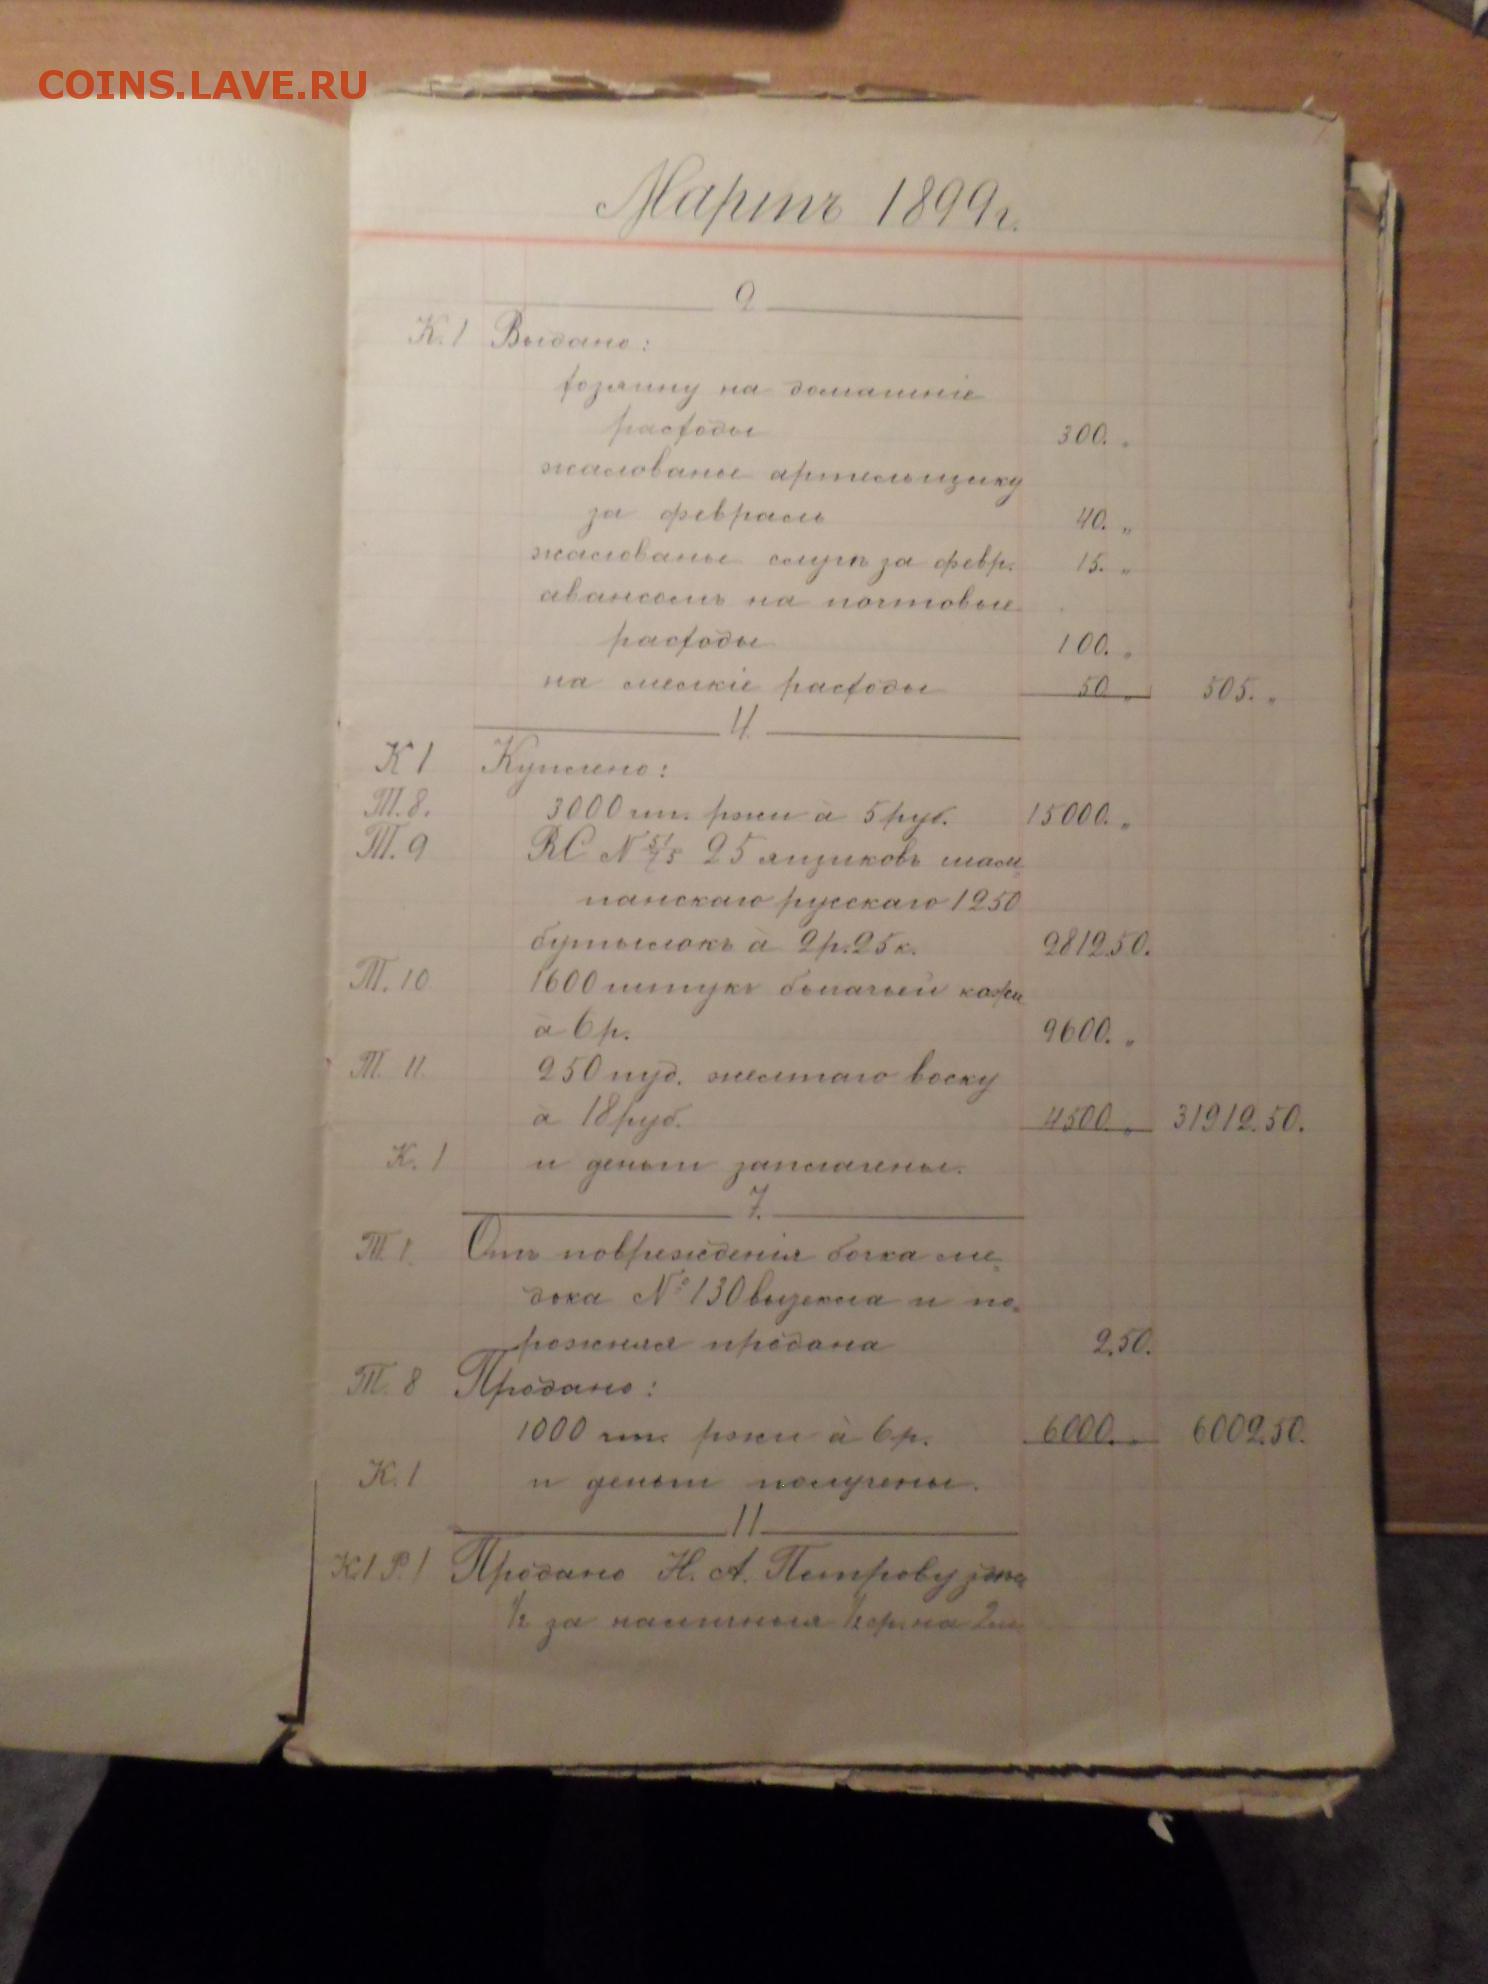 COINS.LAVE.RU
Мартъ 1899 г.
2
К. 1 Выдано:
хозяину на домашніе
расходы 300. „
жалованье артельщику
за февраль 40. „
жалованье слугѣ за февр. 15. „
авансомъ на почтовые
расходы 100. „
на мелкіе расходы 50 „ 505. „
4.
К 1 Куплено:
Т. 8. 3000 чт. ржи à 5 руб. 15000. „
Т. 9 RC N 51/75 25 ящиковъ шам-
панскаго русскаго 1250
бутылокъ à 2 р. 25 к. 2812.50.
Т. 10 1600 штукъ бычачьей кожи
à 6 р. 9600. „
Т. 11. 250 пуд. желтаго воску
à 18 руб. 4500. „ 31912.50.
К. 1 и деньги заплачены.
7.
Т. 1. Отъ поврежденія бочка ме-
дока № 130 вытекла и по-
рожняя продана 2.50.
Т. 8 Продано:
1000 чт. ржи à 6 р. 6000. „ 6002.50.
К. 1 и деньги получены.
11
К.1 Р. 1 Продано Н. А. Петрову
1/2 за наличныя 1/2 ср. на 2 м.